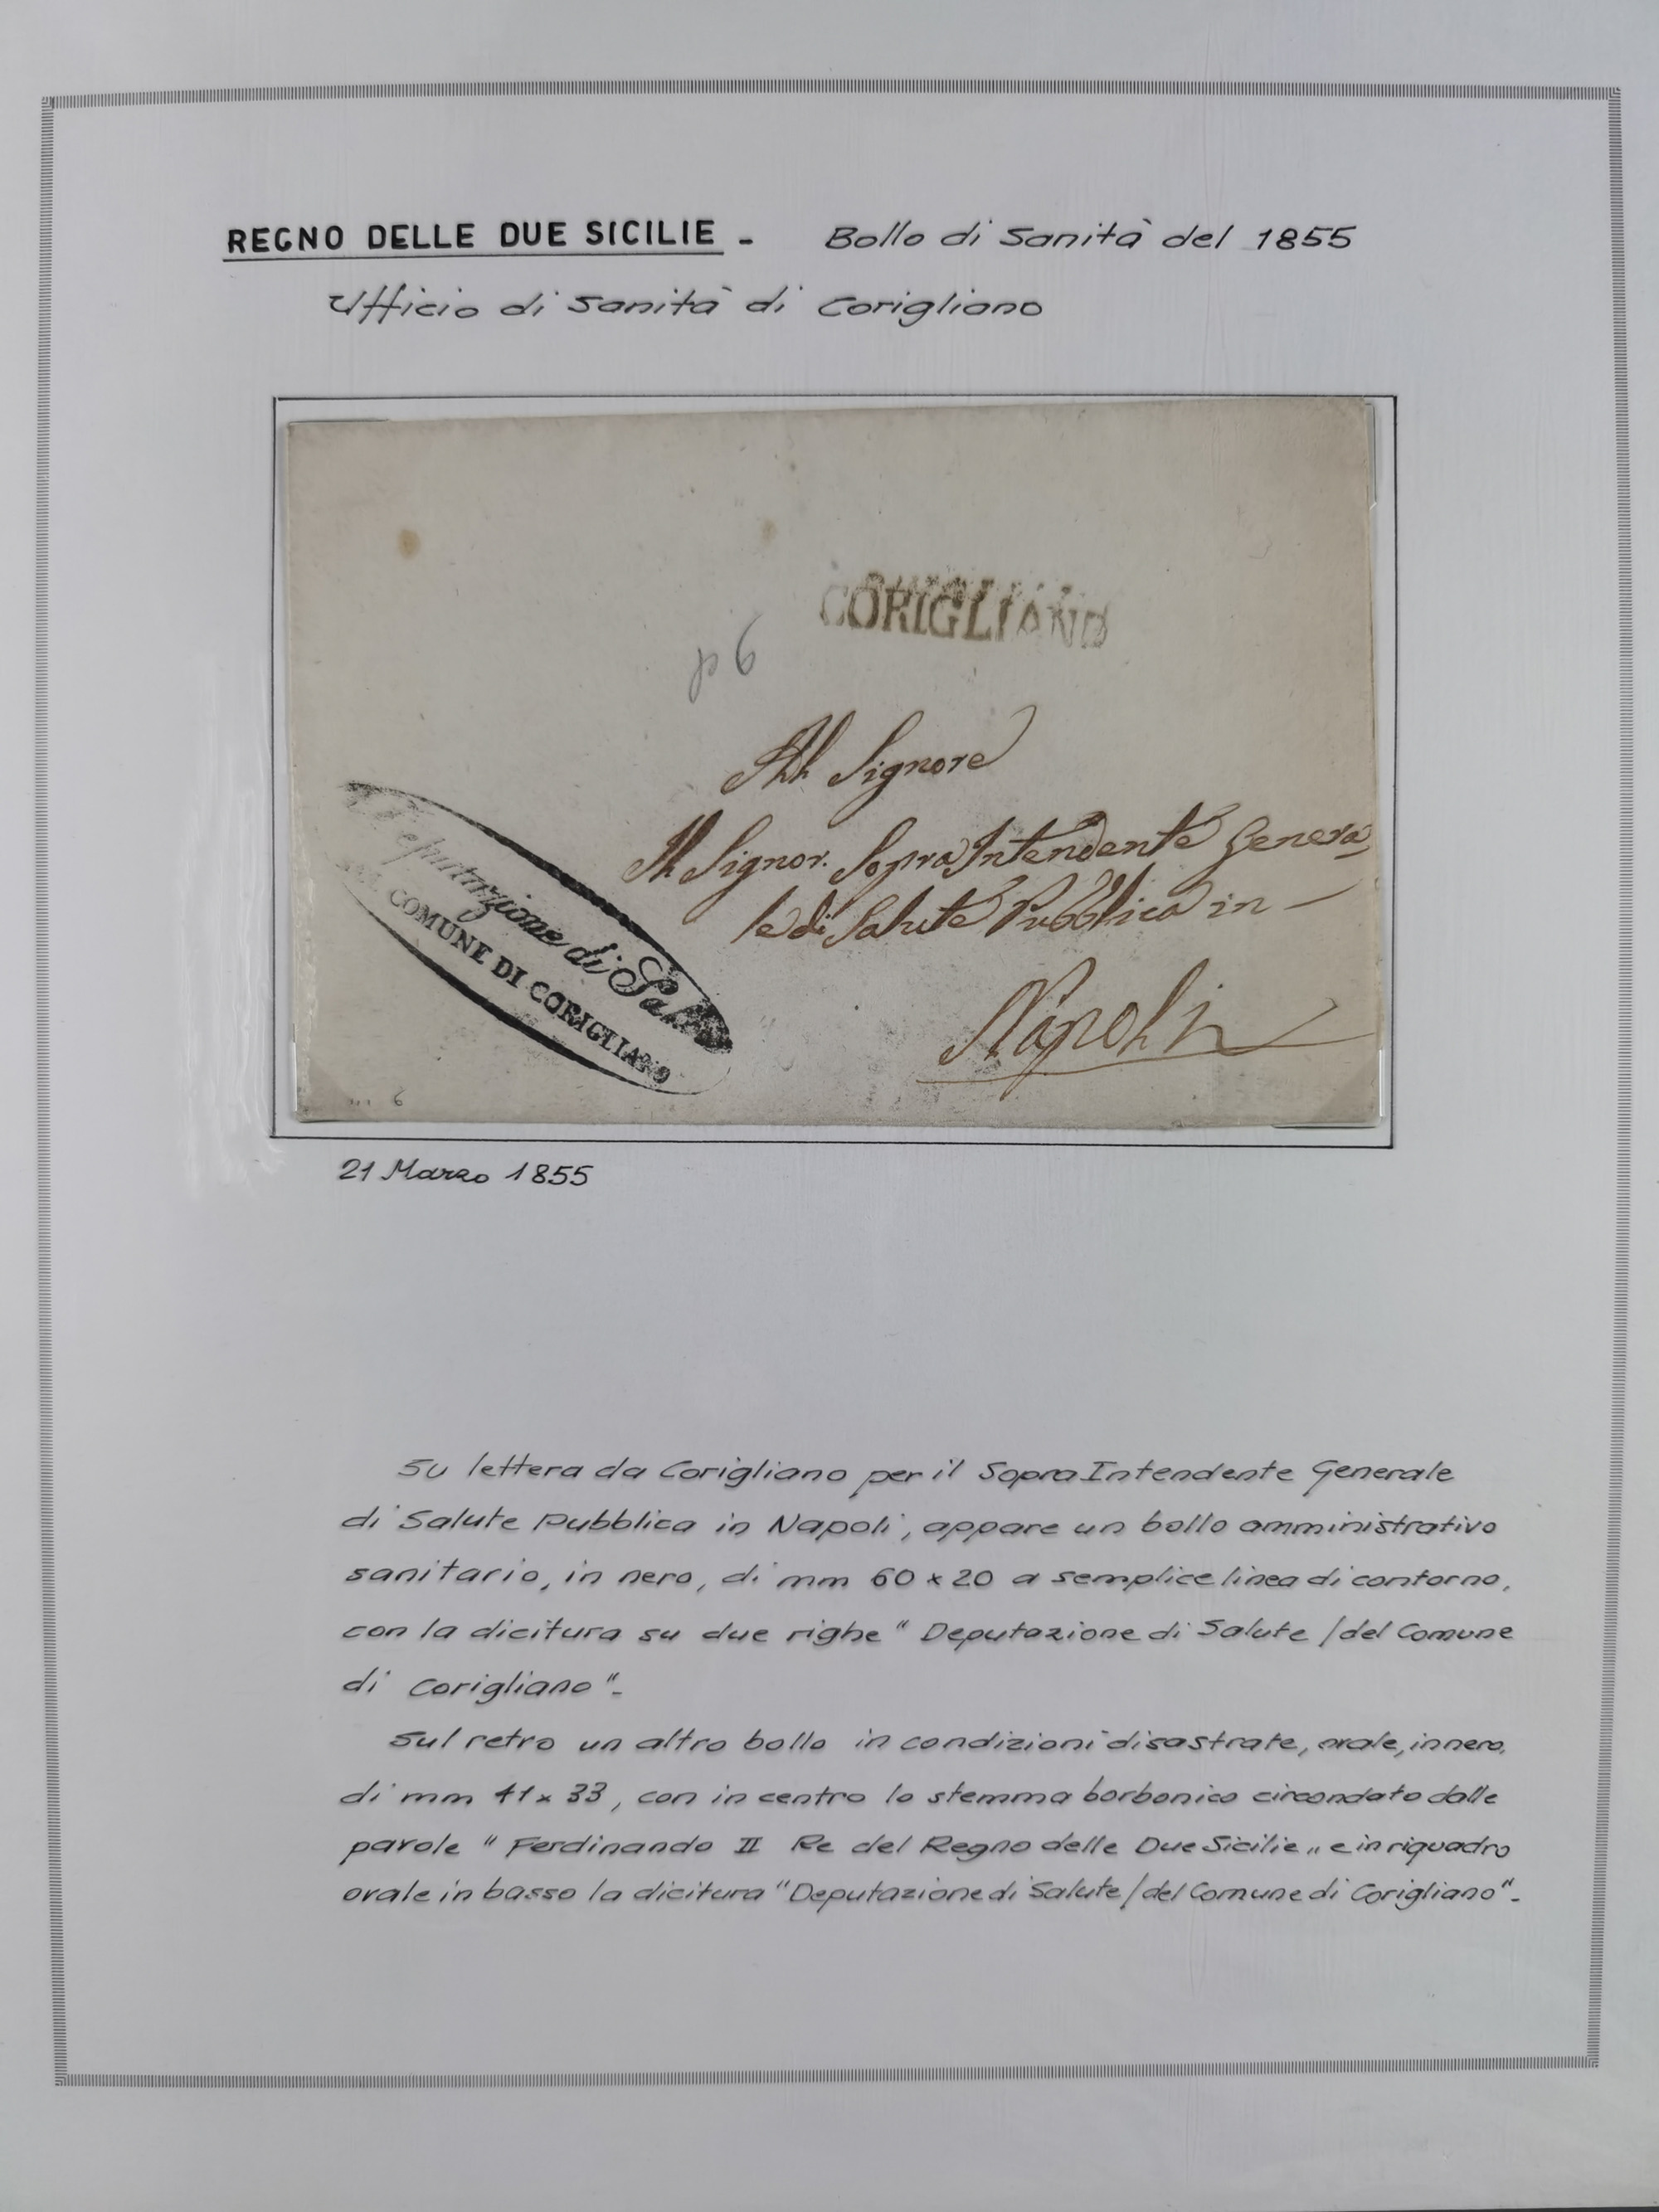 REGNO DELLE DUE SICILIE - Bollo di Sanità del 1855
Ufficio di Sanità di Corigliano
CORIGLIANO
p 6
All Signore
Il Signor. SopraIntendente Genera
le di Salute Pubblica in —
Napoli
Deputazione di Salute
COMUNE DI CORIGLIANO
6
21 Marzo 1855
Su lettera da Corigliano per il SopraIntendente Generale
di Salute Pubblica in Napoli, appare un bollo amministrativo
sanitario, in nero, di mm 60 x 20 a semplice linea di contorno,
con la dicitura su due righe "Deputazione di Salute / del Comune
di Corigliano"-
Sul retro un altro bollo in condizioni disastrate, ovale, in nero,
di mm 41 x 33, con in centro lo stemma borbonico circondato dalle
parole "Ferdinando II Re del Regno delle Due Sicilie" e in riquadro
ovale in basso la dicitura "Deputazione di Salute / del Comune di Corigliano"-